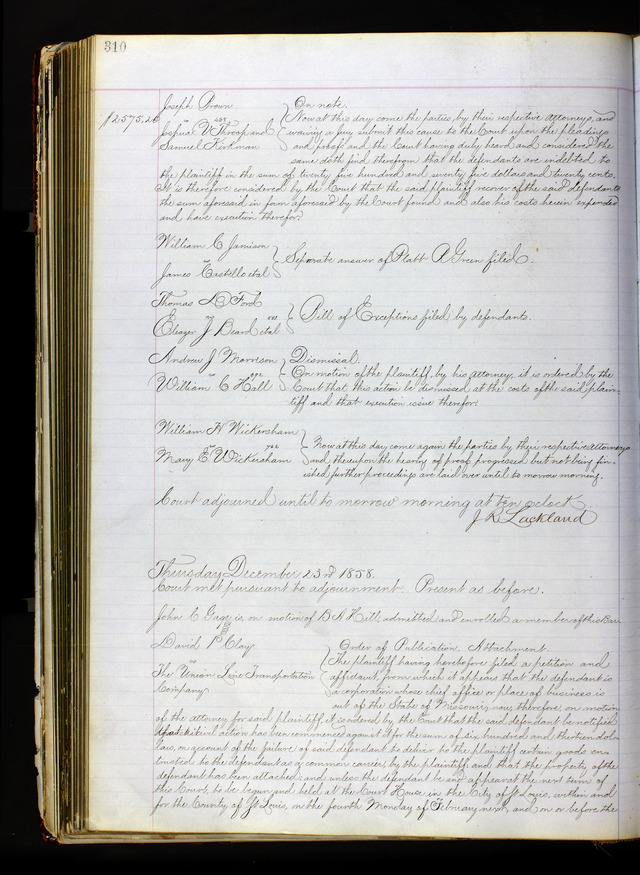 310
Joseph Brown
On note.
$2575.20
vs
Now at this day come the parties, by their respective attorneys, and
Joshua V Throop and
waiving a jury submit this cause to the Court upon the pleadings
Samuel Kirkman
and proofs and the Court having duly heard and considered the
same doth find therefrom that the defendants are indebted to
the plaintiff in the sum of twenty five hundred and seventy five dollars and twenty cents.
It is therefore considered by the Court that the said plaintiff recover of the said defendants
the sum aforesaid in form aforesaid by the Court found and also his costs herein expended
and have execution therefor.
William C Jamison
vs
Separate answer of Platt A Green filed.
James Castillo et al
Thomas D Ford
vs
Bill of Exceptions filed by defendants.
Eleazer J Beard et al
Andrew J Morrison
Dismissal.
vs
On motion of the plaintiff, by his attorney, it is ordered by the
William C Hall
Court that this action be dismissed at the costs of the said plain-
tiff and that execution issue therefor.
William H Wickersham
vs
Now at this day, come again the parties by their respective attorneys
Mary E Wickersham
and thereupon the hearing of proof progressed but not being fin-
ished further proceedings are laid over until to morrow morning.
Court adjourned until to morrow morning at ten o'clock.
J R Lackland
Thursday December 23rd 1858.
Court met pursuant to adjournment. Present as before.
John C Gage is, on motion of B A Hill, admitted and enrolled a member of this Bar
David P Clay
Order of Publication. Attachment.
vs
The plaintiff having heretofore filed a petition and
The Union Line Transportation
affidavit, from which it appears that the defendant is
Company
a corporation whose chief office or place of business is
out of the State of Missouri, now, therefore, on motion
of the attorney for said plaintiff, it is ordered by the Court that the said defendant be notified
that a civil action has been commenced against it for the sum of six hundred and thirteen dol-
lars, on account of the failure of said defendant to deliver to the plaintiff certain goods en-
trusted to the defendant as a common carrier, by the plaintiff, and that the property of the
defendant has been attached; and unless the defendant be and appear at the next term of
this Court, to be begun and held at the Court House in the City of St Louis, within and
for the County of St Louis, on the fourth Monday of February next, and on or before the